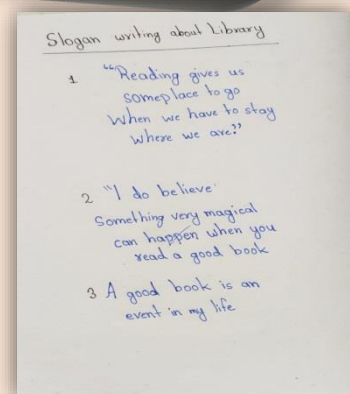 Slogan writing about Library
1 "Reading gives us
someplace to go
When we have to stay
where we are."
2 "I do believe
Something very magical
can happen when you
read a good book
3 A good book is an
event in my life